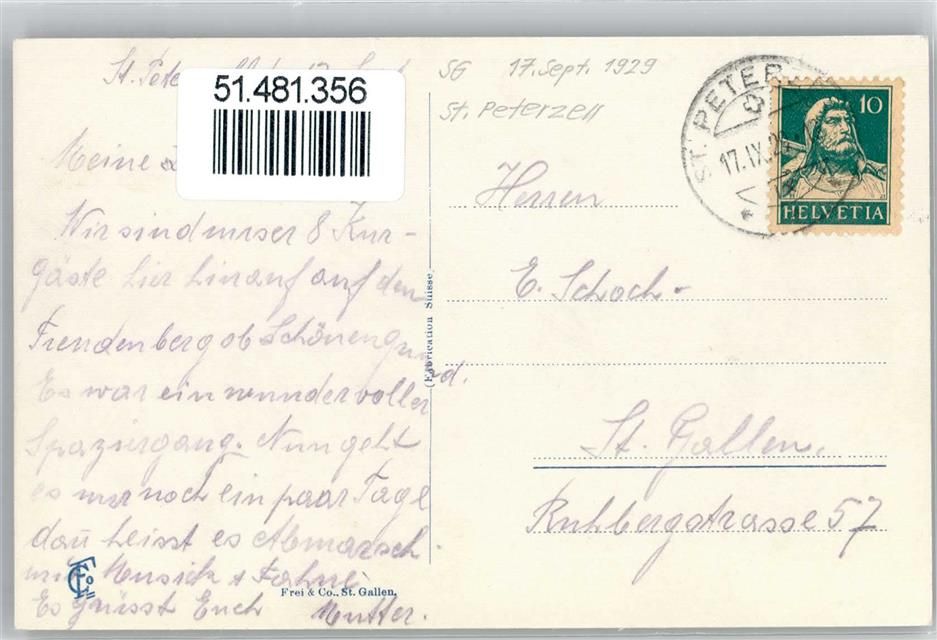 St. Peterzell
51.481.356
Meine
Wir sind unser 8 Kur-
gäste hier hinauf auf den
Freudenberg ob Schönengrund.
Es war ein wundervoller
Spaziergang. Nun geht
es nur noch ein paar Tage
dañ heisst es Abmarsch.
mit Musick & Fahne
Es grüsst Euch Mutter.
Frei & Co., St. Gallen.
(Fabrication Suisse)
SG 17. Sept. 1929
St. Peterzell
ST. PETERZELL
17.IX.29
10
HELVETIA
Herren
E. Schoch-
St. Gallen.
Ruhbergstrasse 57